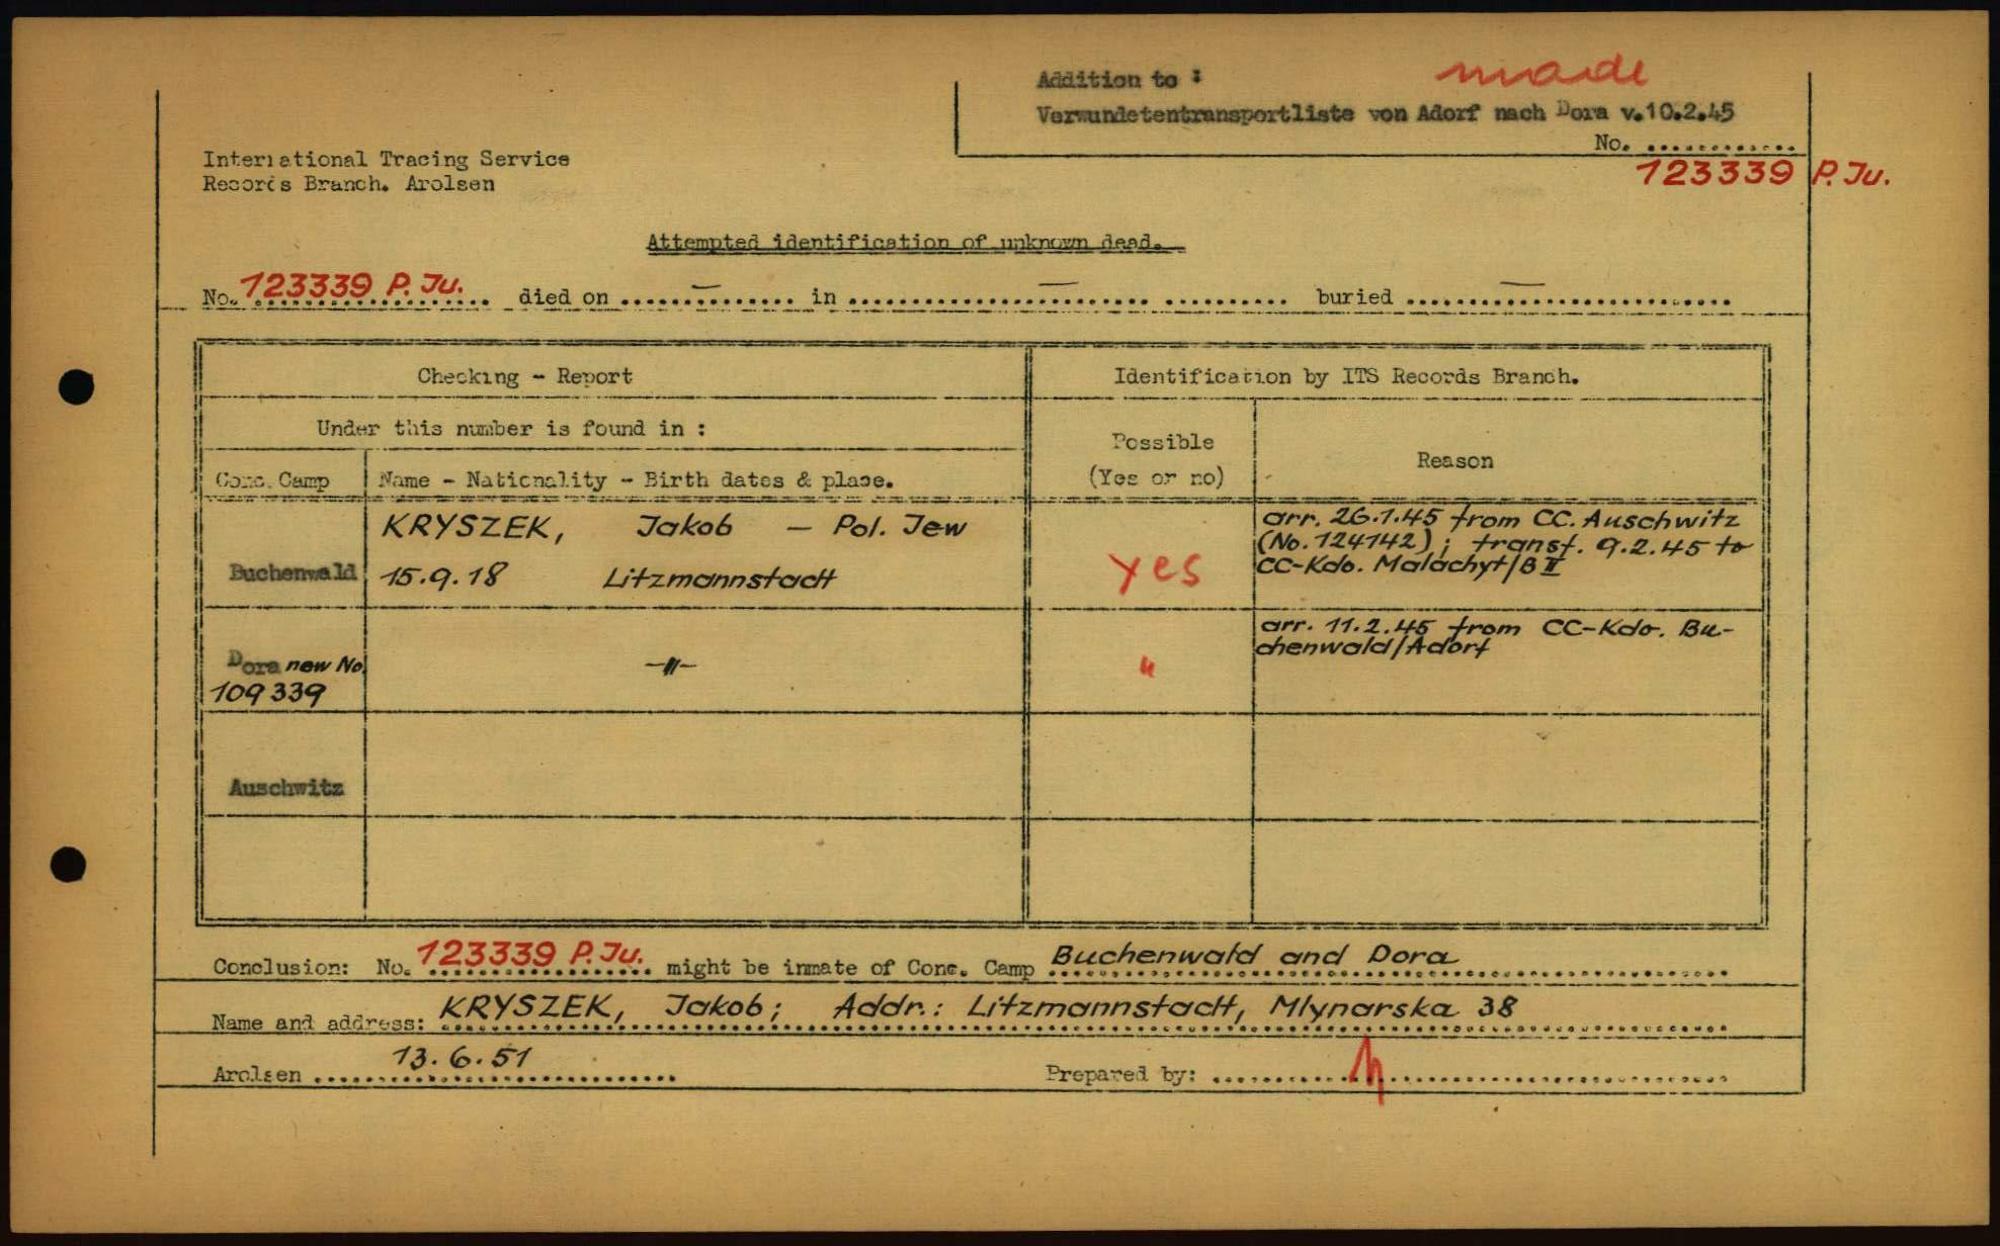 Addition to : made
Verwundetentransportliste von Adorf nach Dora v.10.2.45
No. ............
123339 P. Ju.
International Tracing Service
Records Branch. Arolsen
Attempted identification of unknown dead.
No. 123339 P. Ju. died on ..... — ..... in ..... — ..... buried ..... — .....
Checking - Report
Identification by ITS Records Branch.
Under this number is found in :
Possible
(Yes or no)
Reason
Conc. Camp
Name - Nationality - Birth dates & place.
Buchenwald
KRYSZEK, Jakob — Pol. Jew
15.9.18 Litzmannstadt
yes
arr. 26.1.45 from CC. Auschwitz
(No. 124142); transf. 9.2.45 to
CC-Kdo. Malachyt/B II
Dora new No.
109339
—"—
"
arr. 11.2.45 from CC-Kdo. Bu-
chenwald/Adorf
Auschwitz
Conclusion: No. 123339 P. Ju. might be inmate of Conc. Camp Buchenwald and Dora
Name and address: KRYSZEK, Jakob; Addr.: Litzmannstadt, Mlynarska 38
Arolsen 13.6.51 Prepared by: